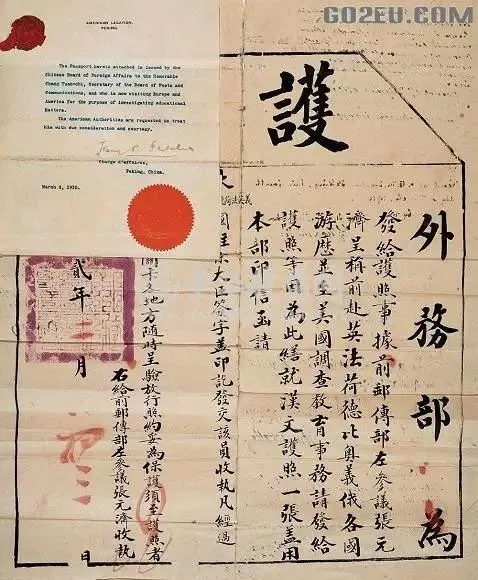 GO2EU.COM
AMERICAN LEGATION,
PEKING.
The Passport hereto attached is issued by the
Chinese Board of Foreign Affairs to the Honorable
Chang Yuan-chi, Secretary of the Board of Posts and
Communications, and who is now visiting Europe and
America for the purpose of investigating educational
Matters.
The American Authorities are requested to treat
him with due consideration and courtesy.
Charge d'affaires,
Peking, China.
March 8, 1910.
護
外務部為
發給護照事據前郵傳部左參議張元
濟呈稱前赴英法荷德比奧義俄各國
游歷並至美國調查教育事務請發給
護照等因為此繕就漢文護照一張蓋用
本部印信函請
國駐京大臣簽字蓋印訖發交該員收執凡經過
關卡各地方隨時呈驗放行照約妥為保護須至護照者
右給前郵傳部左參議張元濟收執
貳年二月 日